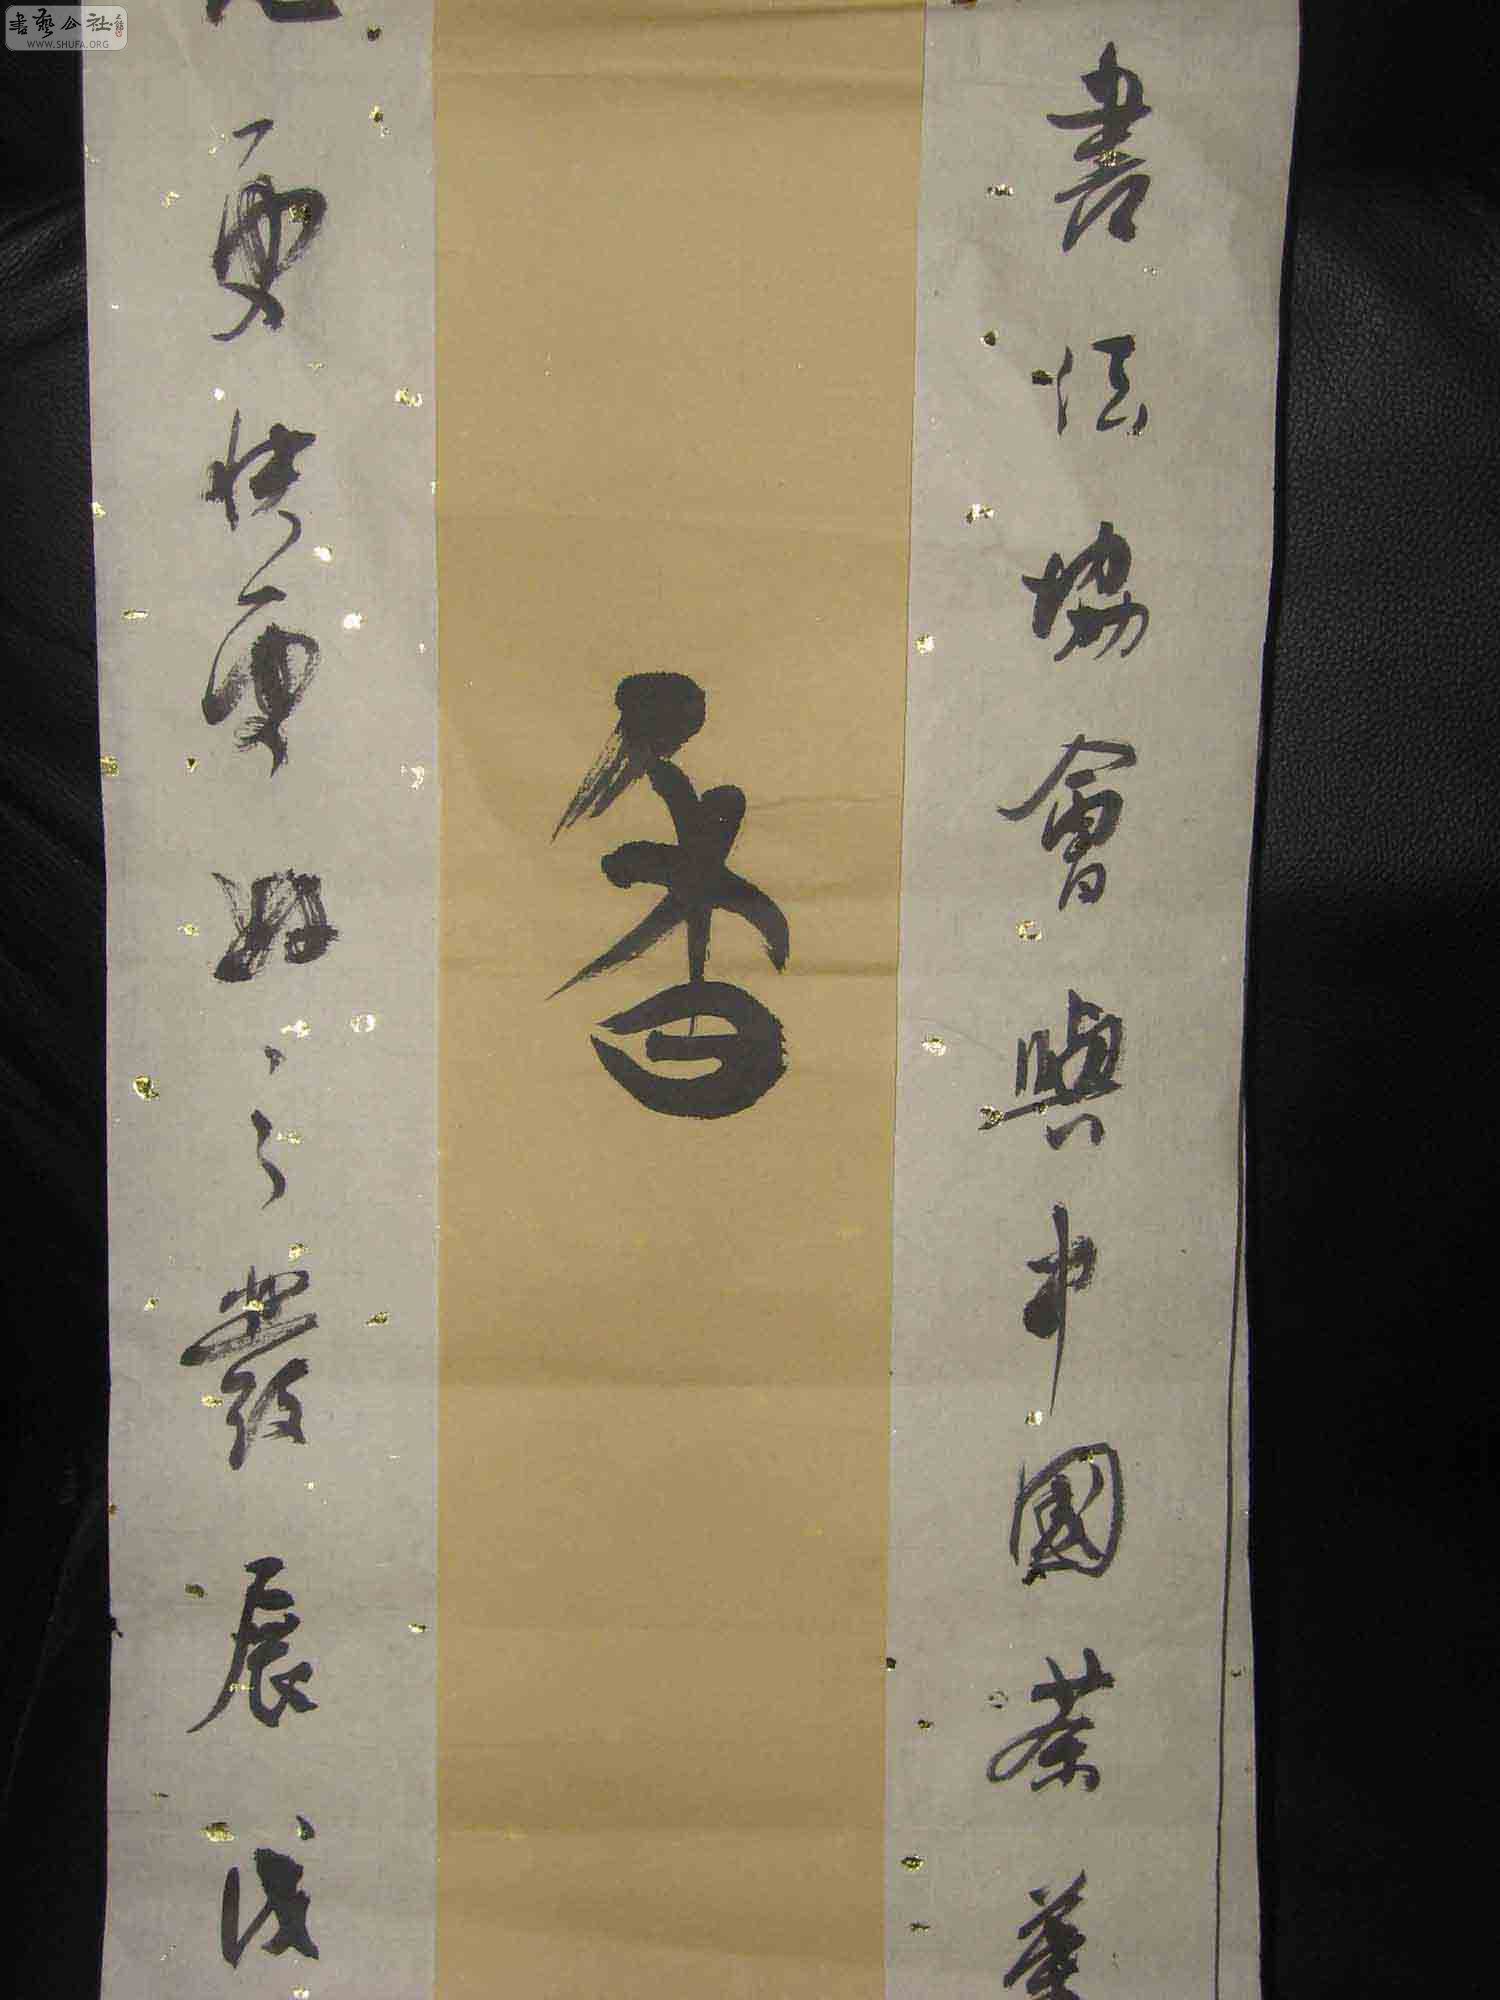 書法協會與中國茶葉
香
更快更好之發展誠
書藝公社
WWW.SHUFA.ORG